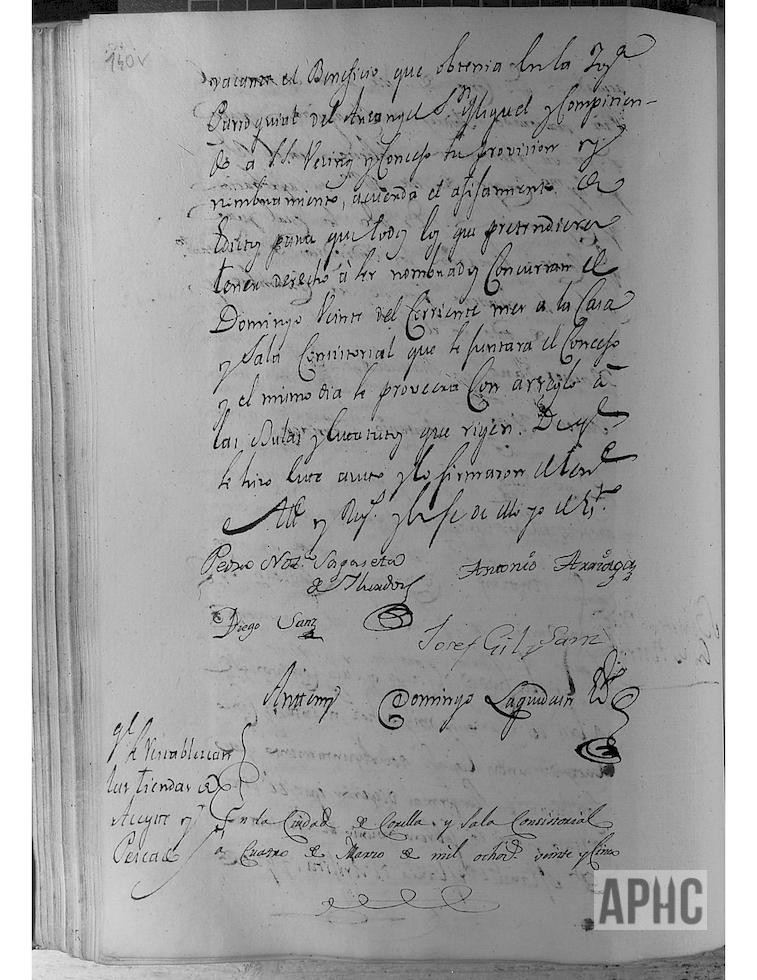 140v
vacante el Beneficio que obtenia en la Ygª
Parroquial del Arcangel Sn Miguel y Compitien-
do a SS. Vecinos y Concejo su provision y
nombramiento, acuerda el afijamiento de
Edictos para que todos los que pretendieren
tener derecho à ser nombrados Concurran el
Domingo Veinte del Corriente mes a la Casa
y Sala Consistorial que se juntara el Concejo
y el mismo dia se proveera Con arreglo à
las Bulas y Estatutos que rigen. De q.
se hizo este auto y lo firmaron el Señor
Alc. y Reg. y en fe de ello yo el Ss.
Pedro Sagaseta
de Ylurdoz
Antonio
Diego Sanz
Josef Gil y Sanz
Antemi Domingo Laquidain
ql
se Establezcan
las tiendas de
Aceyte y
Pescado
En la Ciudad de Corella y Sala Consistorial
a Cuatro de Marzo de mil ochoc. veinte y Cinco
APHC